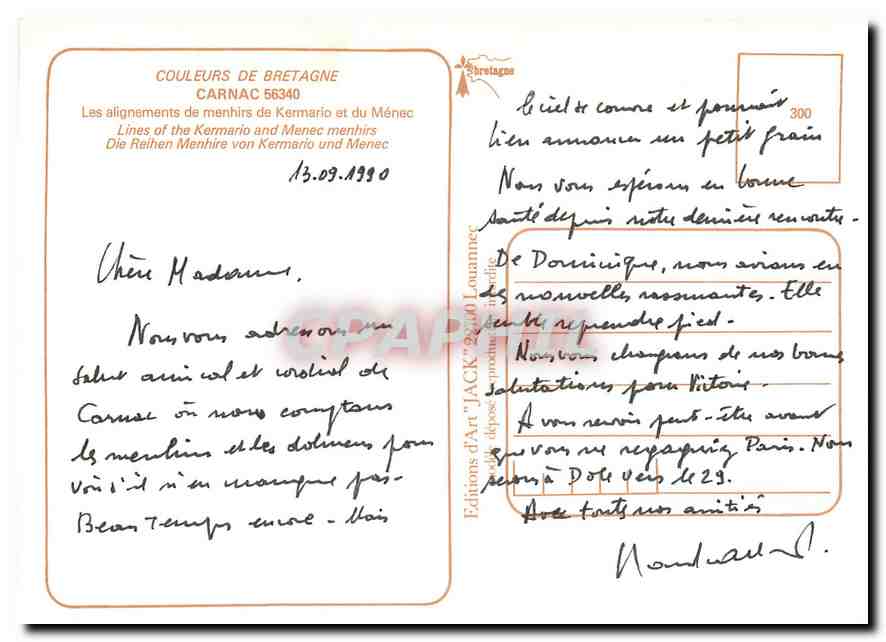 COULEURS DE BRETAGNE
CARNAC 56340
Les alignements de menhirs de Kermario et du Ménec
Lines of the Kermario and Menec menhirs
Die Reihen Menhire von Kermario und Menec
13.09.1990
Chère Madame,
Nous vous adressons un
salut amical et cordial de
Carnac où nous comptons
les menhirs et les dolmens pour
voir s'il n'en manque pas.
Beau Temps encore - Mais
Editions d'Art "JACK" Louannec
modèle déposé reproduction interdite
bretagne
300
le ciel se couvre et pourrait
bien annoncer un petit grain
Nous vous espérons en bonne
santé depuis notre dernière rencontre.
De Dominique, nous avions eu
des nouvelles rassurantes. Elle
semble reprendre pied.
Nous vous chargeons de nos bonnes
salutations pour Victoire.
A vous revoir peut-être avant
que vous ne regagniez Paris. Nous
serons à Dole vers le 29.
Avec toutes nos amitiés
CPAPHIL